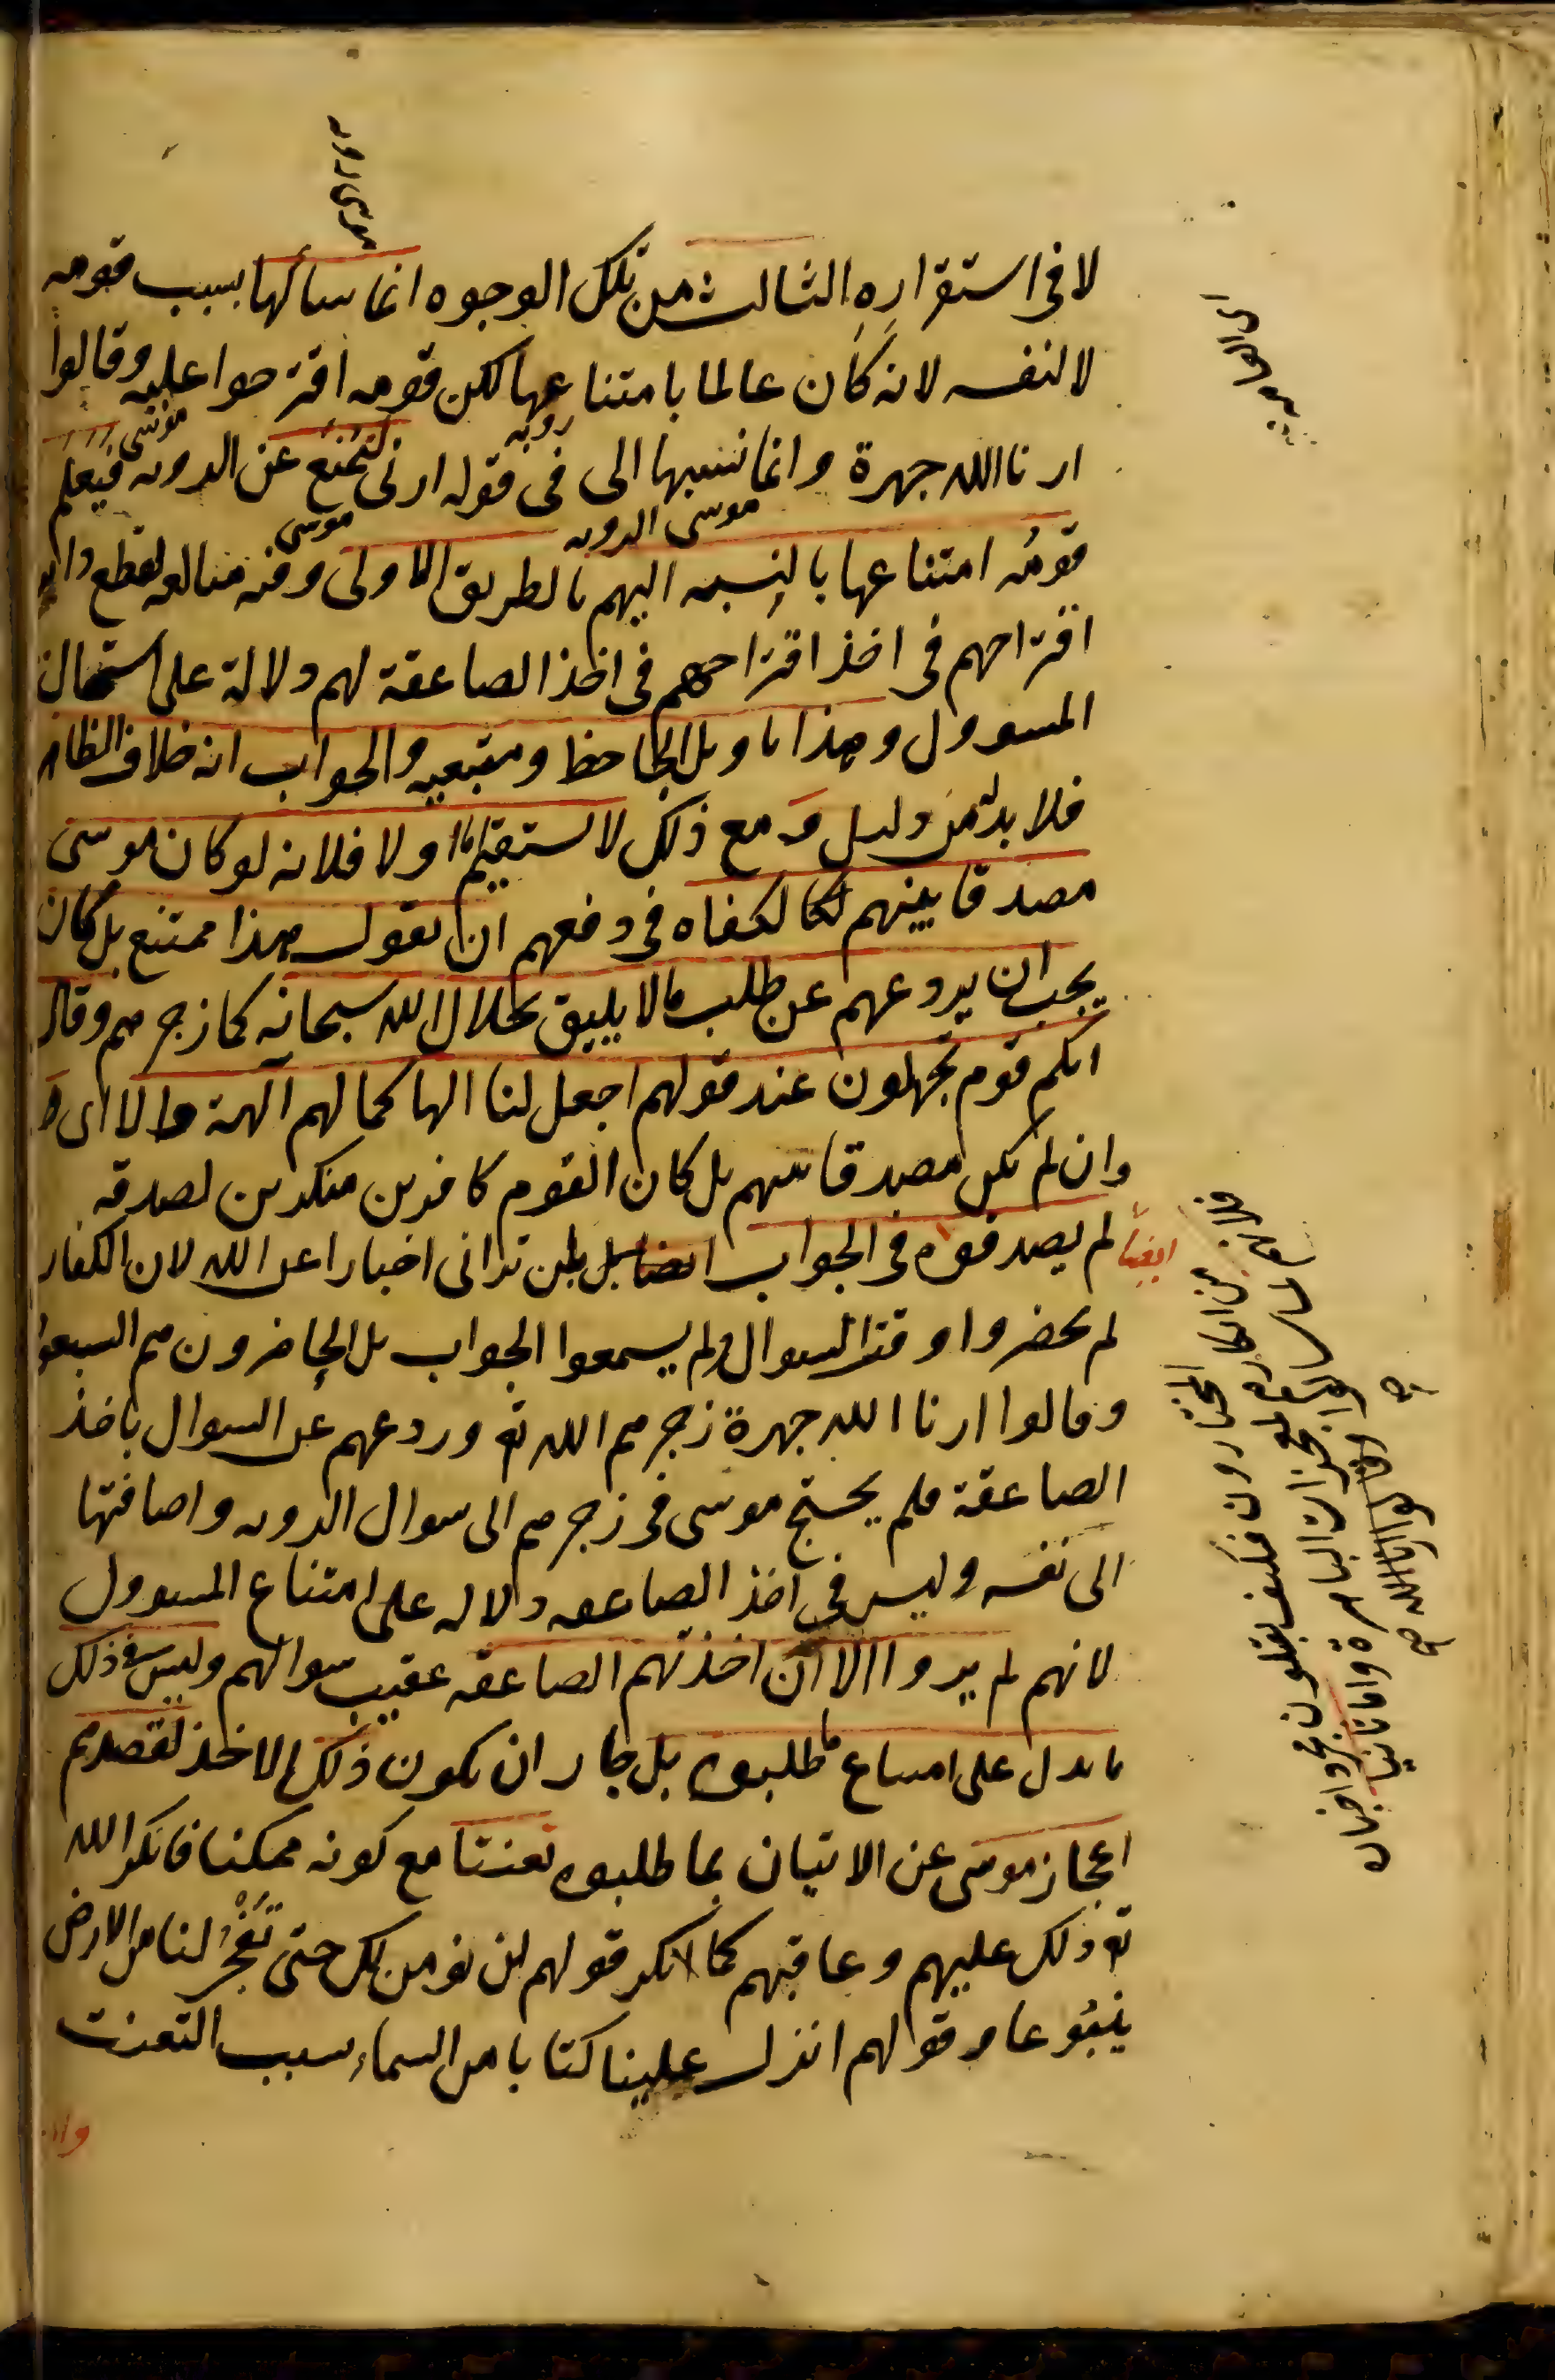 لا فى استقراره الثالث من تلك الوجوه انما سألها بسبب قومه
لا لنفسه لانه كان عالما بامتناعها لكن قومه اقترحوا عليه وقالوا
ارنا الله جهرة وانما نسبها الى فى قوله ارنى لتمنع عن الرويه فيعلم
قومه امتناعها بالنسبه اليهم بالطريق الاولى وفيه مبالغه لقطع
اقتراحهم فى اخذ اقتراحهم فى اخذ الصاعقة لهم دلالة على استحالة
المسوول وهذا تاويل الجاحظ ومتبعيه والجواب انه خلاف الظاهر
فلا بد له من دليل و مع ذلك لا يستقيم اما اولا فلانه لو كان موسى
مصدقا بينهم لكا لكفاه فى دفعهم ان يقول هذا ممتنع بل كان
يجب ان يردعهم عن طلب ما لا يليق بجلال الله سبحانه كما زجرهم وقال
انكم قوم تجهلون عند قولهم اجعل لنا الها كما لهم آلهة والا اى و
وان لم يكن مصدقا بينهم بل كان القوم كافرين منكرين لصدقه
لم يصدقوه فى الجواب ايضا بل بلن ترانى اخبارا عن الله لان الكفار
ايضا
لم يحضروا وقت السوال ولم يسمعوا الجواب بل الحاضرون هم السبعون
وقالوا ارنا الله جهرة زجرهم الله تع وردعهم عن السوال باخذ
الصاعقة فلم يحتج موسى فى زجرهم الى سوال الرويه واضافتها
الى نفسه وليس فى اخذ الصاعقه دلاله على امتناع المسوول
لانهم لم يروا الا ان اخذتهم الصاعقه عقيب سوالهم وليس فى ذلك
ما يدل على امتناع ما طلبوه بل جاز ان يكون ذلك الاخذ لقصدهم
اعجاز موسى عن الاتيان بما طلبوه تعنتا مع كونه ممكنا فانكر الله
تع ذلك عليهم وعاقبهم كما انكر قولهم لن نومن لك حتى تفجر لنا من الارض
ينبوعا و قولهم انزل علينا كتابا من السماء بسبب التعنت
موسى الرويه
رويه
موسى
موسى الرويه
موسى
المختارون فكيف يقبلون مجرد اخباره
المعجزات الباهرة واما ثانيا
وقالوا ارنا الله